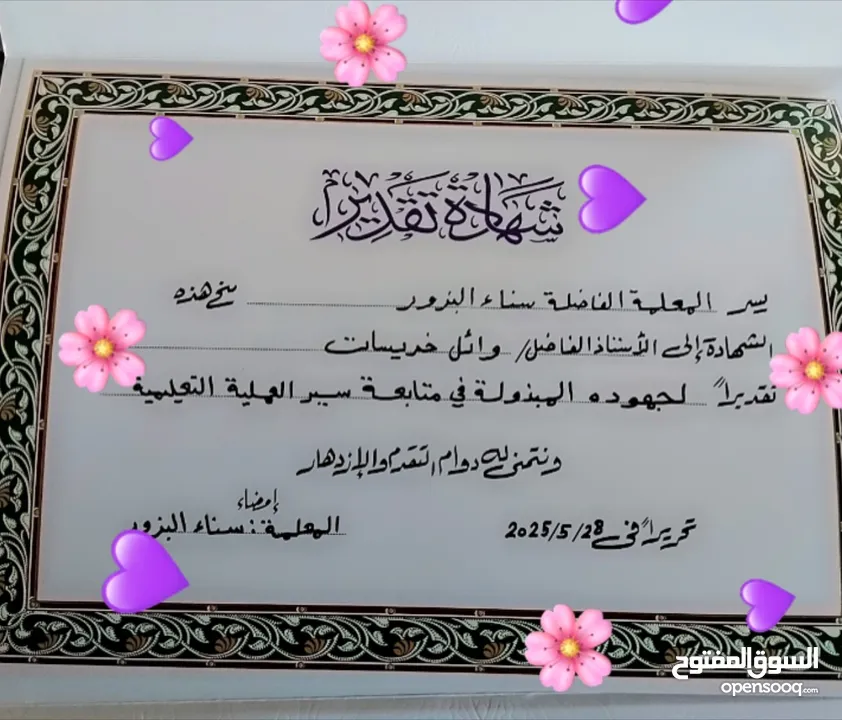 شهادة تقدير
يسر المعلمة الفاضلة سناء البزور منح هذه
الشهادة إلى الأستاذ الفاضل/ وائل خريسات
تقديراً لجهوده المبذولة في متابعة سير العملية التعليمية
ونتمنى له دوام التقدم والإزدهار
إمضاء
تحريراً في 2025/5/28 المعلمة: سناء البزور
السوق المفتوح
opensooq.com